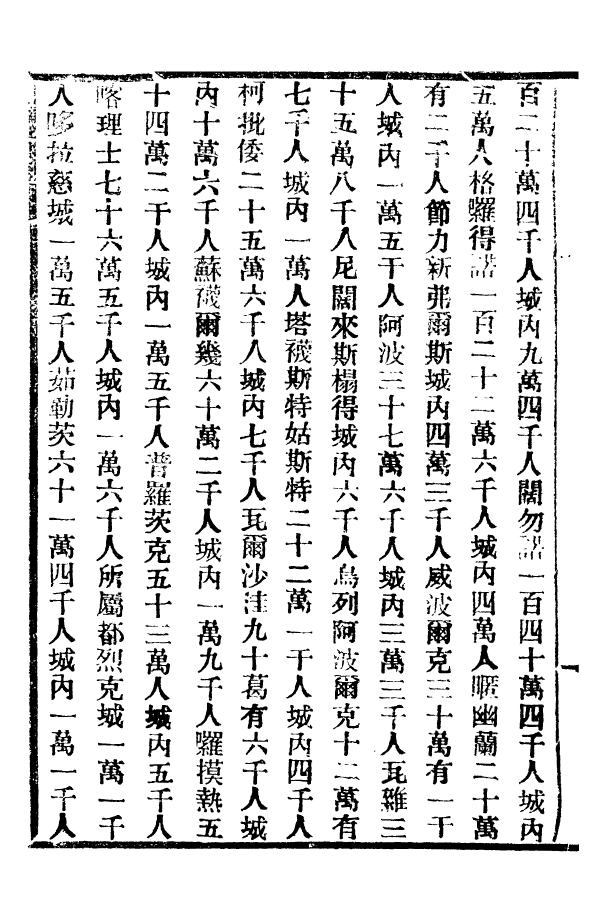 百二十萬四千人城內九萬四千人闊勿諾一百四十萬四千人城內
五萬人格羅得諾一百二十二萬六千人城內四萬人曘幽蘭二十萬
有二千人節力新弗爾斯城內四萬三千人威波爾克三十萬有一千
人城內一萬五千人阿波三十七萬六千人城內三萬三千人瓦雖三
十五萬八千人尼闊來斯榻得城內六千人烏列阿波爾克十二萬有
七千人城內一萬人塔襪斯特姑斯特二十二萬一千人城內四千人
柯批倭二十五萬六千人城內七千人瓦爾沙洼九十葛有六千人城
內十萬六千人蘇襪爾幾六十萬二千人城內一萬九千人囉摸熱五
十四萬二千人城內一萬五千人普羅茨克五十三萬人城內五千人
喀理士七十六萬五千人城內一萬六千人所屬都烈克城一萬一千
人哆拉慈城一萬五千人茹勒茨六十一萬四千人城內一萬一千人